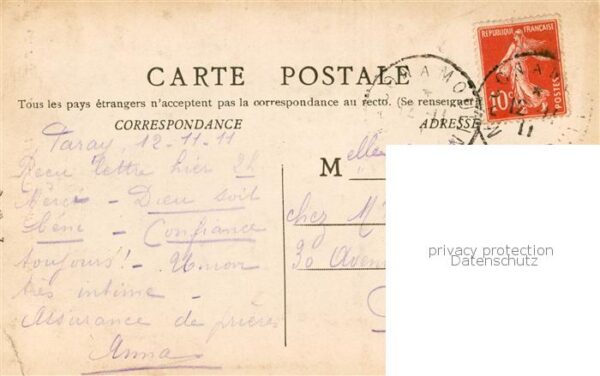 CARTE POSTALE
Tous les pays étrangers n'acceptent pas la correspondance au recto. (Se renseigner
CORRESPONDANCE
ADRESSE
REPUBLIQUE FRANÇAISE
10c
POSTES
12
11
Taray, 12-11-11
Recu lettre hier
Merci - Dieu soit
béni - Confiance
toujours! - Union
très intime -
Assurance de prières
Anna
M elle
chez M
30 Aven
privacy protection
Datenschutz